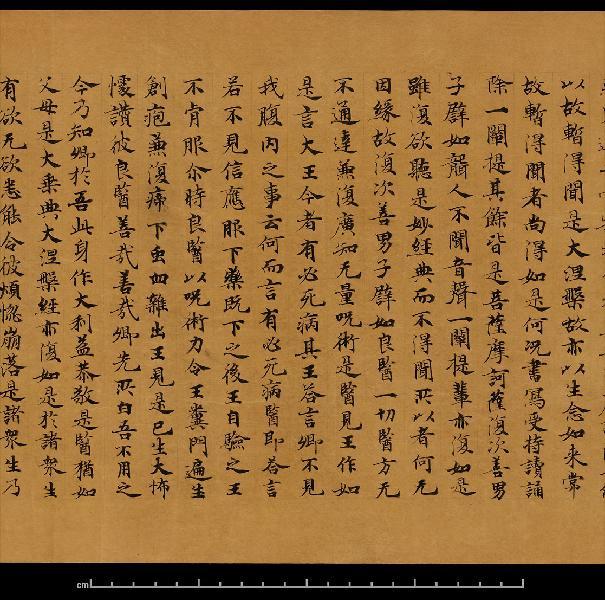 以故暫得聞是大涅槃故亦以生念如來常
故暫得聞者尚得如是何況書寫受持讀誦
除一闡提其餘皆是菩薩摩訶薩復次善男
子譬如聾人不聞音聲一闡提輩亦復如是
雖復欲聽是妙經典而不得聞所以者何无
因緣故復次善男子譬如良醫一切醫方无
不通達兼復廣知无量呪術是醫見王作如
是言大王今者有必死病其王答言卿不見
我腹內之事云何而言有必死病醫即答言
若不見信應服下藥既下之後王自驗之王
不肯服尒時良醫以呪術力令王糞門遍生
創疱兼復㾀下虫血雜出王見是已生大怖
懅讚彼良醫善哉善哉卿先所白吾不用之
今乃知卿於吾此身作大利益恭敬是醫猶如
父母是大乘典大涅槃經亦復如是於諸衆生
有欲无欲悉能令彼煩惱崩落是諸衆生乃